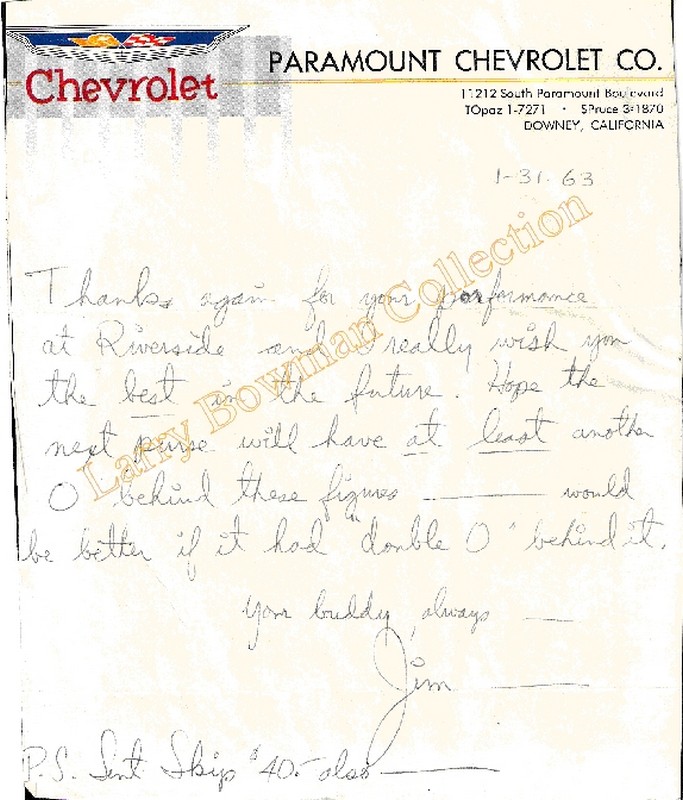 Chevrolet
PARAMOUNT CHEVROLET CO.
11212 South Paramount Boulevard
TOpaz 1-7271 · SPruce 3-1870
DOWNEY, CALIFORNIA
1-31-63
Thanks again for your performance
at Riverside and I really wish you
the best in the future. Hope the
next purse will have at least another
O behind these figures — would
be better if it had "double O" behind it.
Your buddy, always —
Jim —
P.S. Sent Skip $40.- also —
Larry Bowman Collection